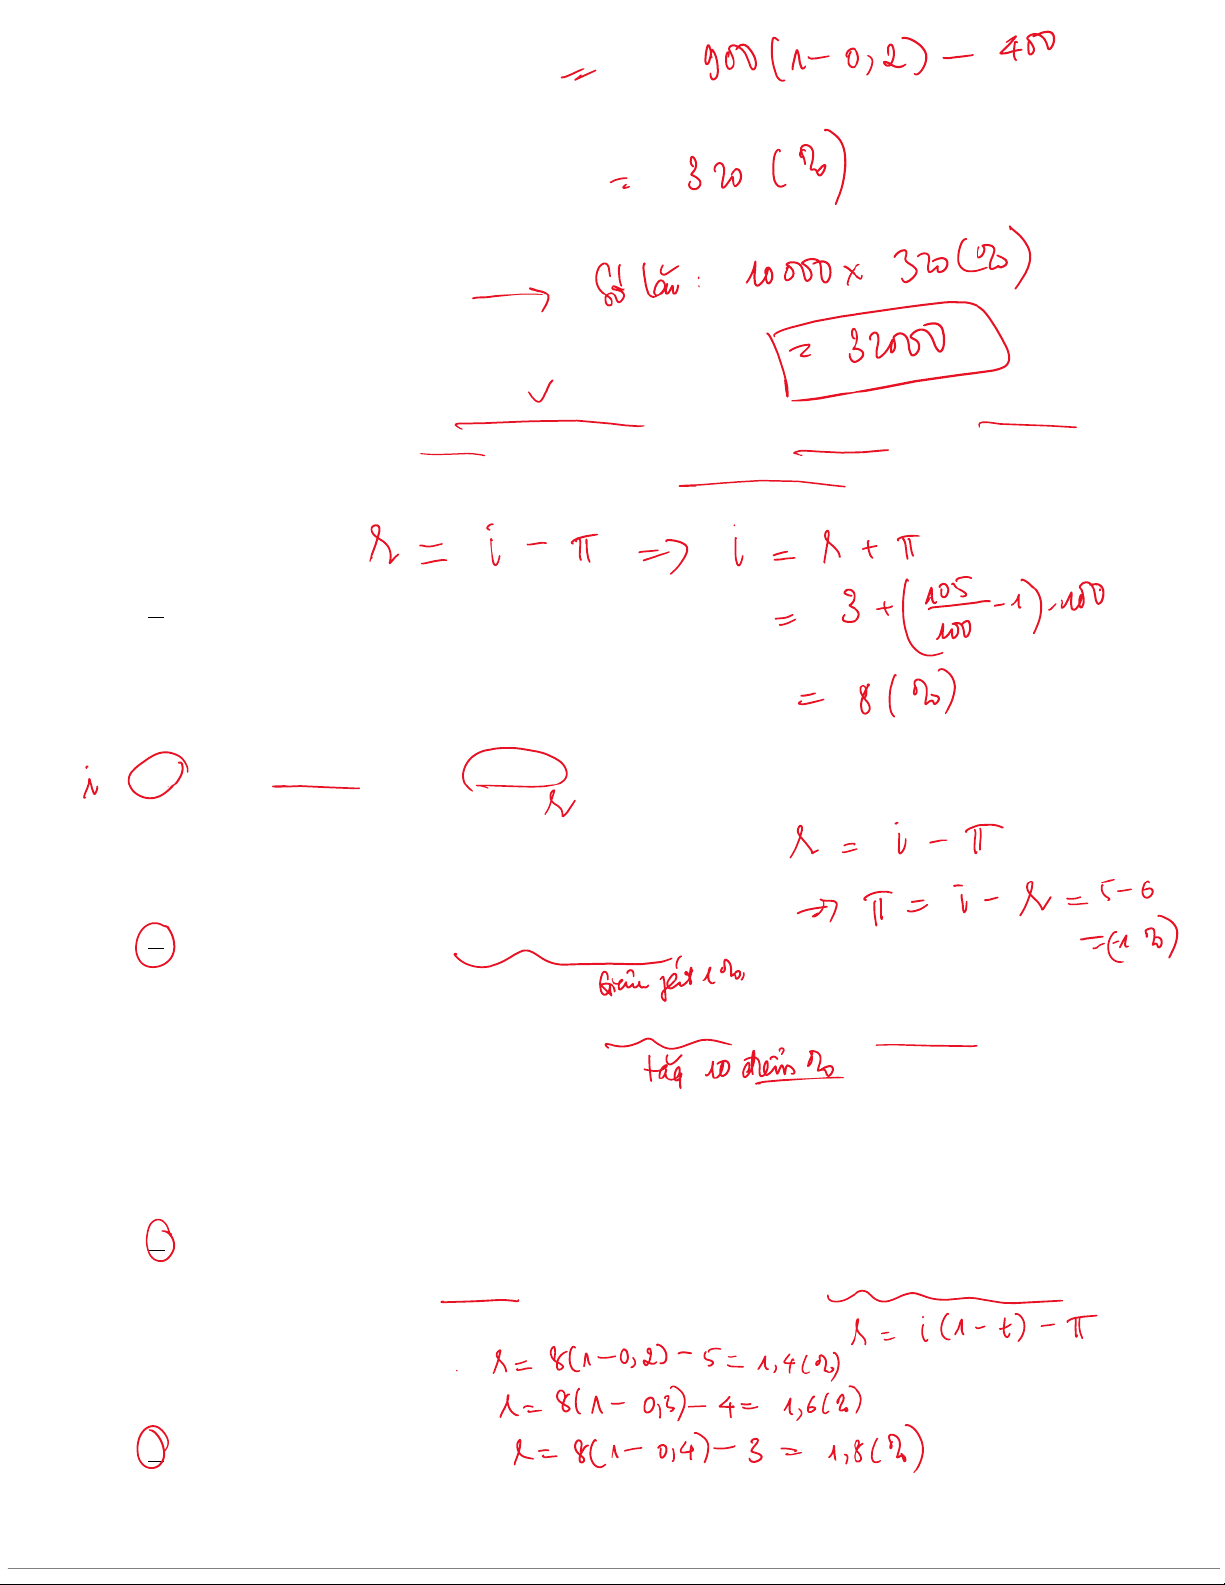 = 900(1-0,2) - 400
= 320 (%)
→ Số lần: 10000 x 320 (%)
= 32000
r = i - π => i = r + π
= 3 + (105/100 - 1).100
= 8 (%)
i
r
r = i - π
→ π = i - r = 5-6
= (-1 %)
Giảm phát 1%
tăng 10 điểm %
r = i(1-t) - π
r = 8(1-0,2) - 5 = 1,4(%)
r = 8(1-0,3) - 4 = 1,6(%)
r = 8(1-0,4) - 3 = 1,8(%)